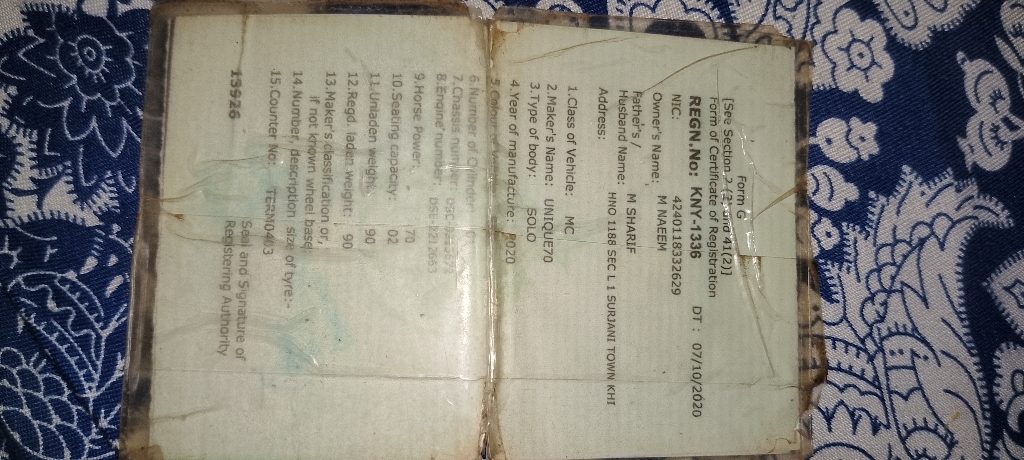 Form G
[See Section 7 (2) and 41(2)]
Form of Certificate of Registration
REGN.No: KNY-1336 DT : 07/10/2020
NIC: 4240118332629
Owner's Name: M NAEEM
Father's /
Husband Name: M SHARIF
Address: HNO 1188 SEC L 1 SURJANI TOWN KHI
1.Class of Vehicle: MC
2.Maker's Name: UNIQUE70
3.Type of body: SOLO
4.Year of manufacture: 2020
6.Number of
7.Chassis number:
8.Engine number:
9.Horse Power: 70
10.Seating capacity: 02
11.Unladen weight: 90
12.Regd. laden weight: 90
13.Maker's classification or,
if not known wheel base
14.Number, description size of tyre:-
15.Counter No: TERN0403
Seal and Signature of
Registering Authority
13926